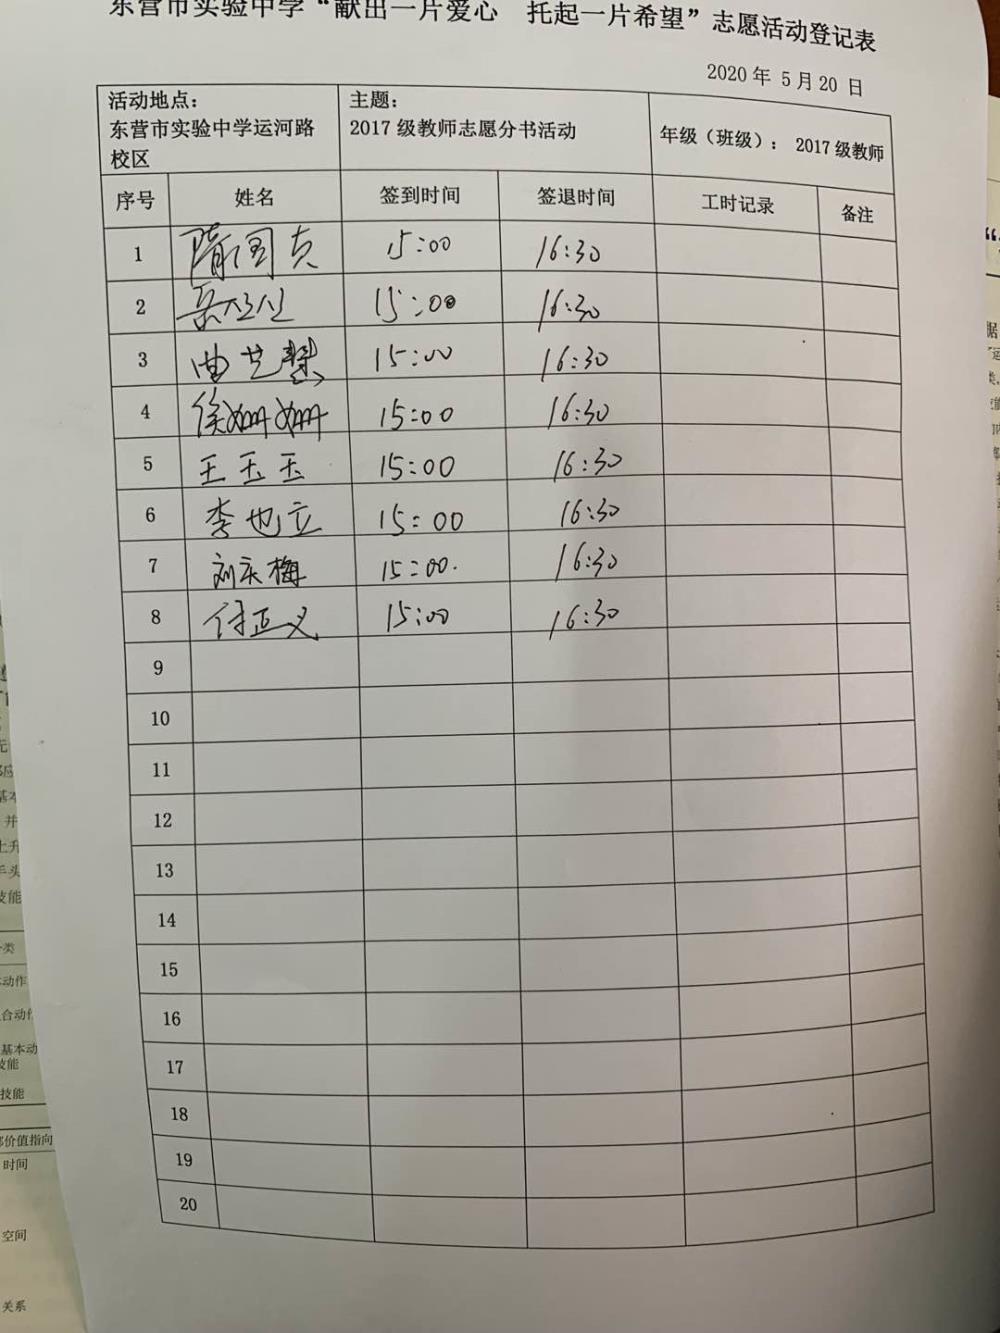 东营市实验中学“献出一片爱心 托起一片希望”志愿活动登记表
2020 年 5 月 20 日
活动地点：
东营市实验中学运河路
校区
主题：
2017 级教师志愿分书活动
年级（班级）： 2017 级教师
序号 姓名 签到时间 签退时间 工时记录 备注
1 隋国贞 15:00 16:30
2 岳 15:00 16:30
3 曲艺慧 15:00 16:30
4 徐姗姗 15:00 16:30
5 王玉玉 15:00 16:30
6 李也立 15:00 16:30
7 刘庆梅 15:00. 16:30
8 付正义 15:00 16:30
9
10
11
12
13
14
15
16
17
18
19
20
基本
并
上升
手头
技能
分类
本动作
基本动
技能
技能
部价值指向
时间
空间
关系
据